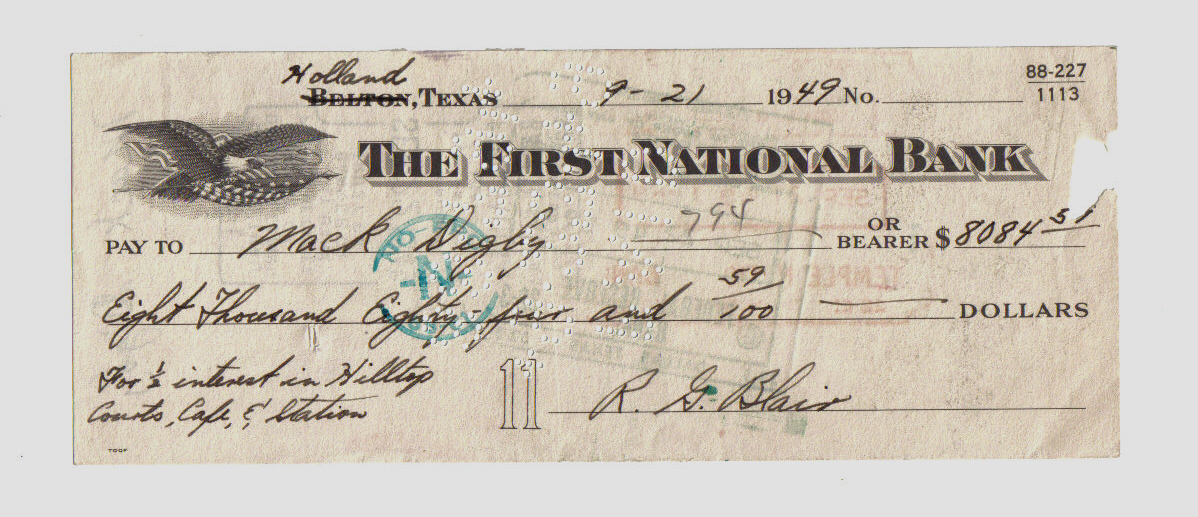 Holland
BELTON, TEXAS 9-21 1949 No.
88-227
1113
THE FIRST NATIONAL BANK
794
PAY TO Mack Digby OR BEARER $8084 59
Eight Thousand Eighty-four and 59/100 DOLLARS
For 1/2 interest in Hilltop
Courts, Cafe, & Station
11 R. G. Blair
TOOF